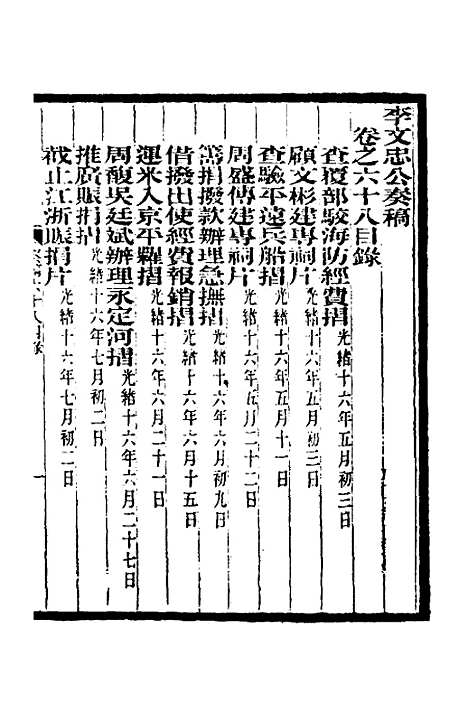 李文忠公奏稿
卷之六十八目錄
查覆部駮海防經費摺 光緒十六年五月初三日
顧文彬建專祠片 光緒十六年五月初三日
查驗平遠兵船摺 光緒十六年五月十一日
周盛傳建專祠片 光緒十六年五月二十二日
籌捐撥款辦理急撫摺 光緒十六年六月初九日
借撥出使經費報銷摺 光緒十六年六月十五日
運米入京平糶摺 光緒十六年六月二十一日
周馥吳廷斌辦理永定河摺 光緒十六年六月二十七日
推廣賑捐摺 光緒十六年七月初二日
截止江浙賑捐片 光緒十六年七月初二日